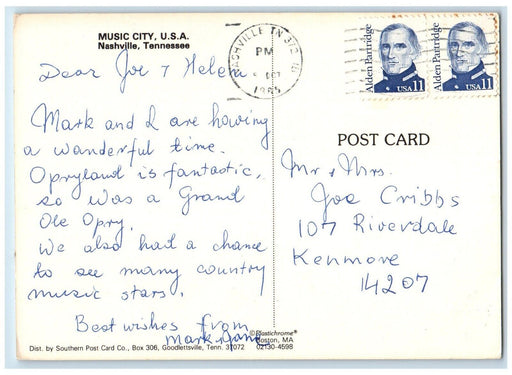 MUSIC CITY, U.S.A.
Nashville, Tennessee
Dear Joe & Helen
Mark and I are having
a wanderful time.
Opryland is fantastic,
so was a Grand
Ole Opry.
We also had a chance
to see many country
music stars.
Best wishes from
Mark
Dist. by Southern Post Card Co., Box 306, Goodlettsville, Tenn. 37072
Plastichrome®
Boston, MA
02130-4598
NASHVILLE TN 372
PM
OCT
1985
Alden Partridge
USA 11
Alden Partridge
USA 11
POST CARD
Mr & Mrs.
Joe Cribbs
107 Riverdale
Kenmore
14207